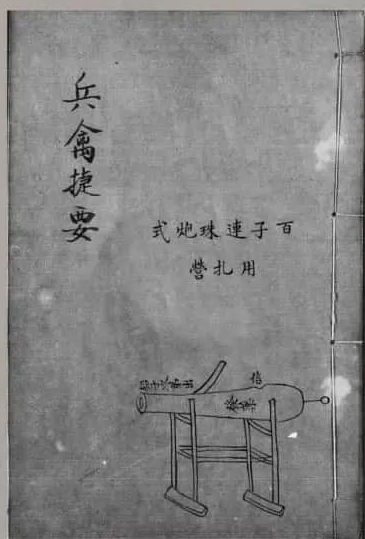 兵禽捷要
百子連珠炮式
用扎營
信